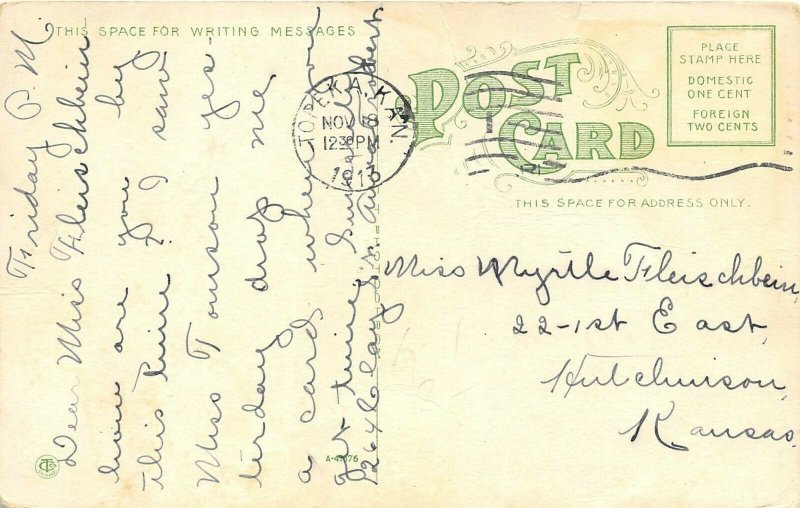 THIS SPACE FOR WRITING MESSAGES
Friday P. M.
Dear Miss Fleischbein
how are you by
this time? I saw
Miss Tomson yes-
terday drop me
a card when you
get time.
1264 Clay
TOPEKA, KAN.
NOV 8
12 30 PM
1913
POST CARD
PLACE
STAMP HERE
DOMESTIC
ONE CENT
FOREIGN
TWO CENTS
THIS SPACE FOR ADDRESS ONLY.
Miss Myrtle Fleischbein,
22-1st East,
Hutchinson,
Kansas.
A-47676